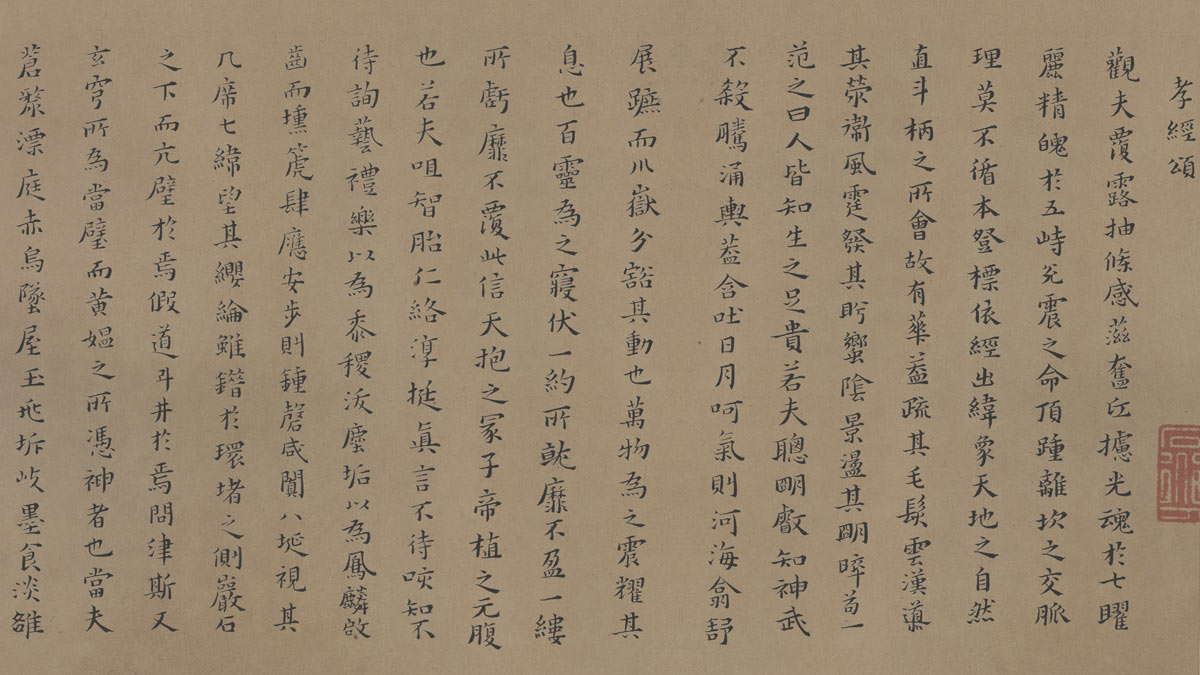 孝經頌
觀夫覆露抽條感滋奮丘攄光魂於七曜
麗精魄於五峙兊震之命頂踵離坎之交脈
理莫不循本登標依經出緯象天地之自然
直斗柄之所會故有華葢疏其毛髮雲漢導
其滎衞風霆發其肹蠁陰景盪其明晬苟一
范之曰人皆知生之足貴若夫聰明叡知神武
不殺騰涌輿葢含吐日月呵氣則河海翕舒
展蹠而川嶽分豁其動也萬物為之震耀其
息也百靈為之寢伏一約所就靡不盈一縷
所虧靡不覆此信天抱之冡子帝植之元腹
也若夫咀智胎仁絡淳挻眞言不待咳知不
待詢藝禮樂以為黍稷泼塵垢以為鳳麟啟
齒而壎箎肆應安步則鍾磬咸閴八埏視其
几席七緯望其纓綸鯫鐕於環堵之側巖石
之下而亢璧於焉假道斗井於焉問津斯又
玄穹所為當璧而黄媼之所憑神者也當夫
蒼漦漂庭赤烏墜屋玉兆坼歧墨食淡雒